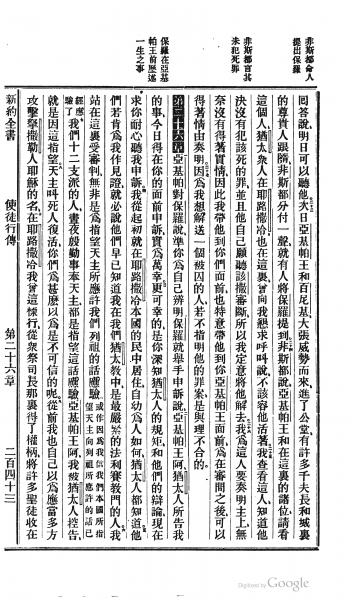 非斯都命人
提出保羅
非斯都言其
未犯死罪
保羅在亞基
帕王前歷述
一生之事
囘答說明日可以聽他次日亞基帕王和百尼基大張威勢而來進了公堂有許多千夫長和城裏
的尊貴人跟隨非斯都分付一聲就有人將保羅提到非斯都說亞基帕王和在這裏的諸位請看
這個人猶太衆人在耶路撒冷也在這裏曾向我懇求呼叫說不該容他活著我查看這人知道他
決沒有犯該死的罪並且他自己願聽該撒審斷所以我定意將他解去我爲這人要奏明主上無
奈沒有得著實情因此我帶他到你們面前也特意帶他到你亞基帕王面前爲在審問之後可以
得著情由奏明因爲我想解送一個被囚的人若不指明他的罪案是與理不合的
第二十六章亞基帕對保羅說準你爲自己辨明保羅就舉手申訴說亞基帕王阿猶太人所告我
的事今日得在你的面前申訴實爲萬幸更可幸的是你深知猶太人的規矩和他們的辯論現在
求你耐心聽我申訴我從起初就在耶路撒冷本國的民中居住自幼爲人如何猶太人都知道他
們若肯爲我作見證就必說他們早已知道我在我們猶太敎中是最嚴緊的法利賽敎門的人我
站在這裏受審判無非是爲指望天主所應許我們列祖的話應驗或作因爲我信我們本國所指望天主向列祖所應許的話已經應驗了
我們十二支派的人晝夜殷勤事奉天主都是指望這話應驗亞基帕王阿我被猶太人控告
就是因這指望天主叫死人復活你們爲甚麼以爲是不可信的呢從前我也自己以爲應當多方
攻擊拏撒勒人耶穌的名在耶路撒冷我曾這樣行從衆祭司長那裏得了權柄將許多聖徒收在
新約全書
使徒行傳
第二十六章
二百四十三
Digitized by Google